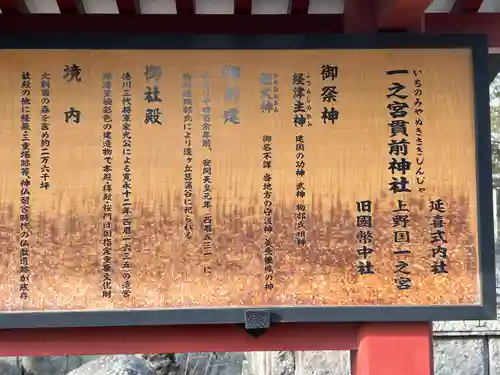 いちのみやぬきさきじんじゃ
一之宮貫前神社
延喜式内社
上野国一之宮
旧國幣中社
御祭神
ふつぬしのかみ
経津主神
建国の功神 武神 物部氏祖神
ひめおおかみ
姫大神
御名不詳 当地方の守護神 養蚕機織の神
御創建
一千四百余年前、安閑天皇元年(西暦五三一)に
物部姓磯部氏により蓬ヶ丘菖蒲谷に祀られる
御社殿
徳川三代将軍家光公による寛永十二年(西暦一六三五)の造営
漆塗極彩色の建造物で本殿・拝殿・桜門は国指定重要文化財
境内
北斜面の森を含め約二万六千坪
社殿の他に経蔵、三重塔跡等、神仏習合時代の仏教遺跡が残存